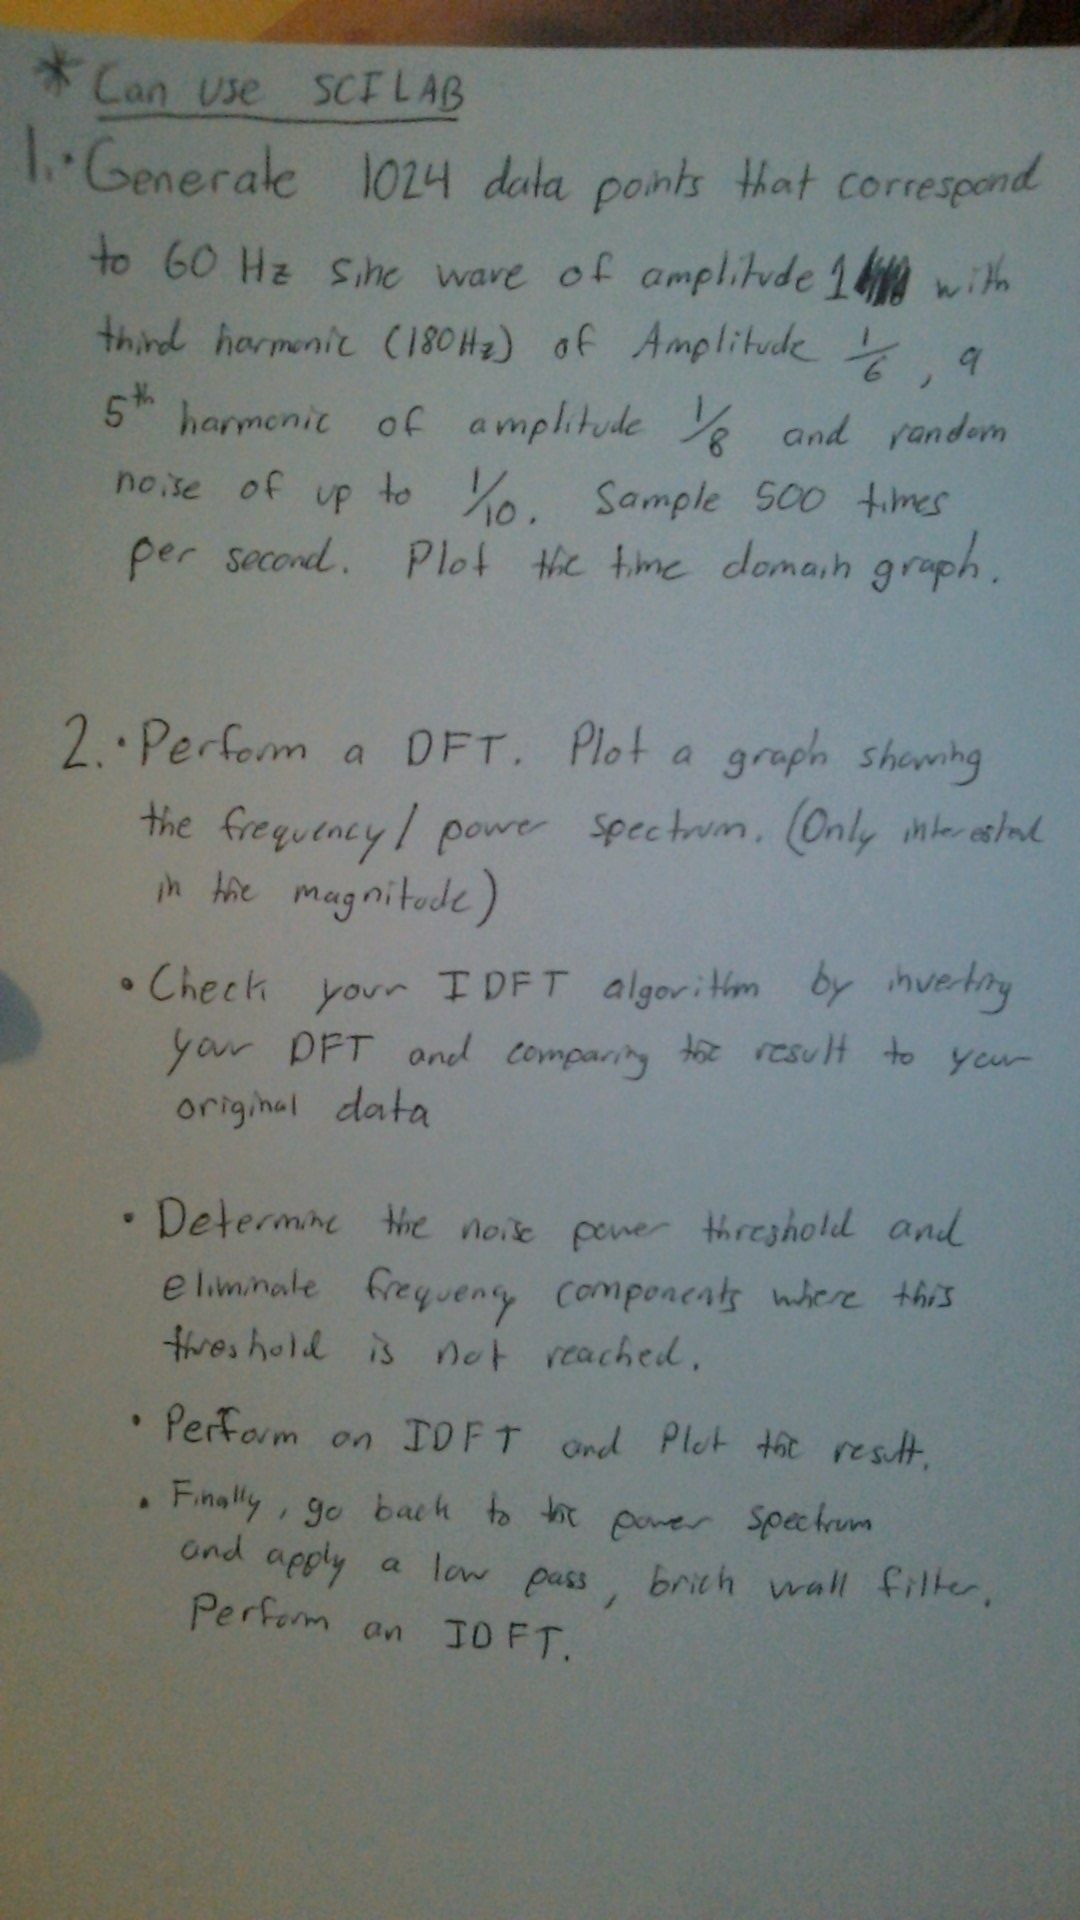 * Can use SCILAB
1. • Generate 1024 data points that correspond
to 60 Hz sine wave of amplitude 1 with
third harmonic (180Hz) of Amplitude 1/6, a
5th harmonic of amplitude 1/8 and random
noise of up to 1/10. Sample 500 times
per second. Plot the time domain graph.
2. • Perform a DFT. Plot a graph showing
the frequency/ power spectrum. (Only interested
in the magnitude)
• Check your IDFT algorithm by inverting
your DFT and comparing the result to your
original data
• Determine the noise power threshold and
eliminate frequency components where this
threshold is not reached.
• Perform an IDFT and Plot the result.
• Finally, go back to the power spectrum
and apply a low pass, brick wall filter.
Perform an IDFT.